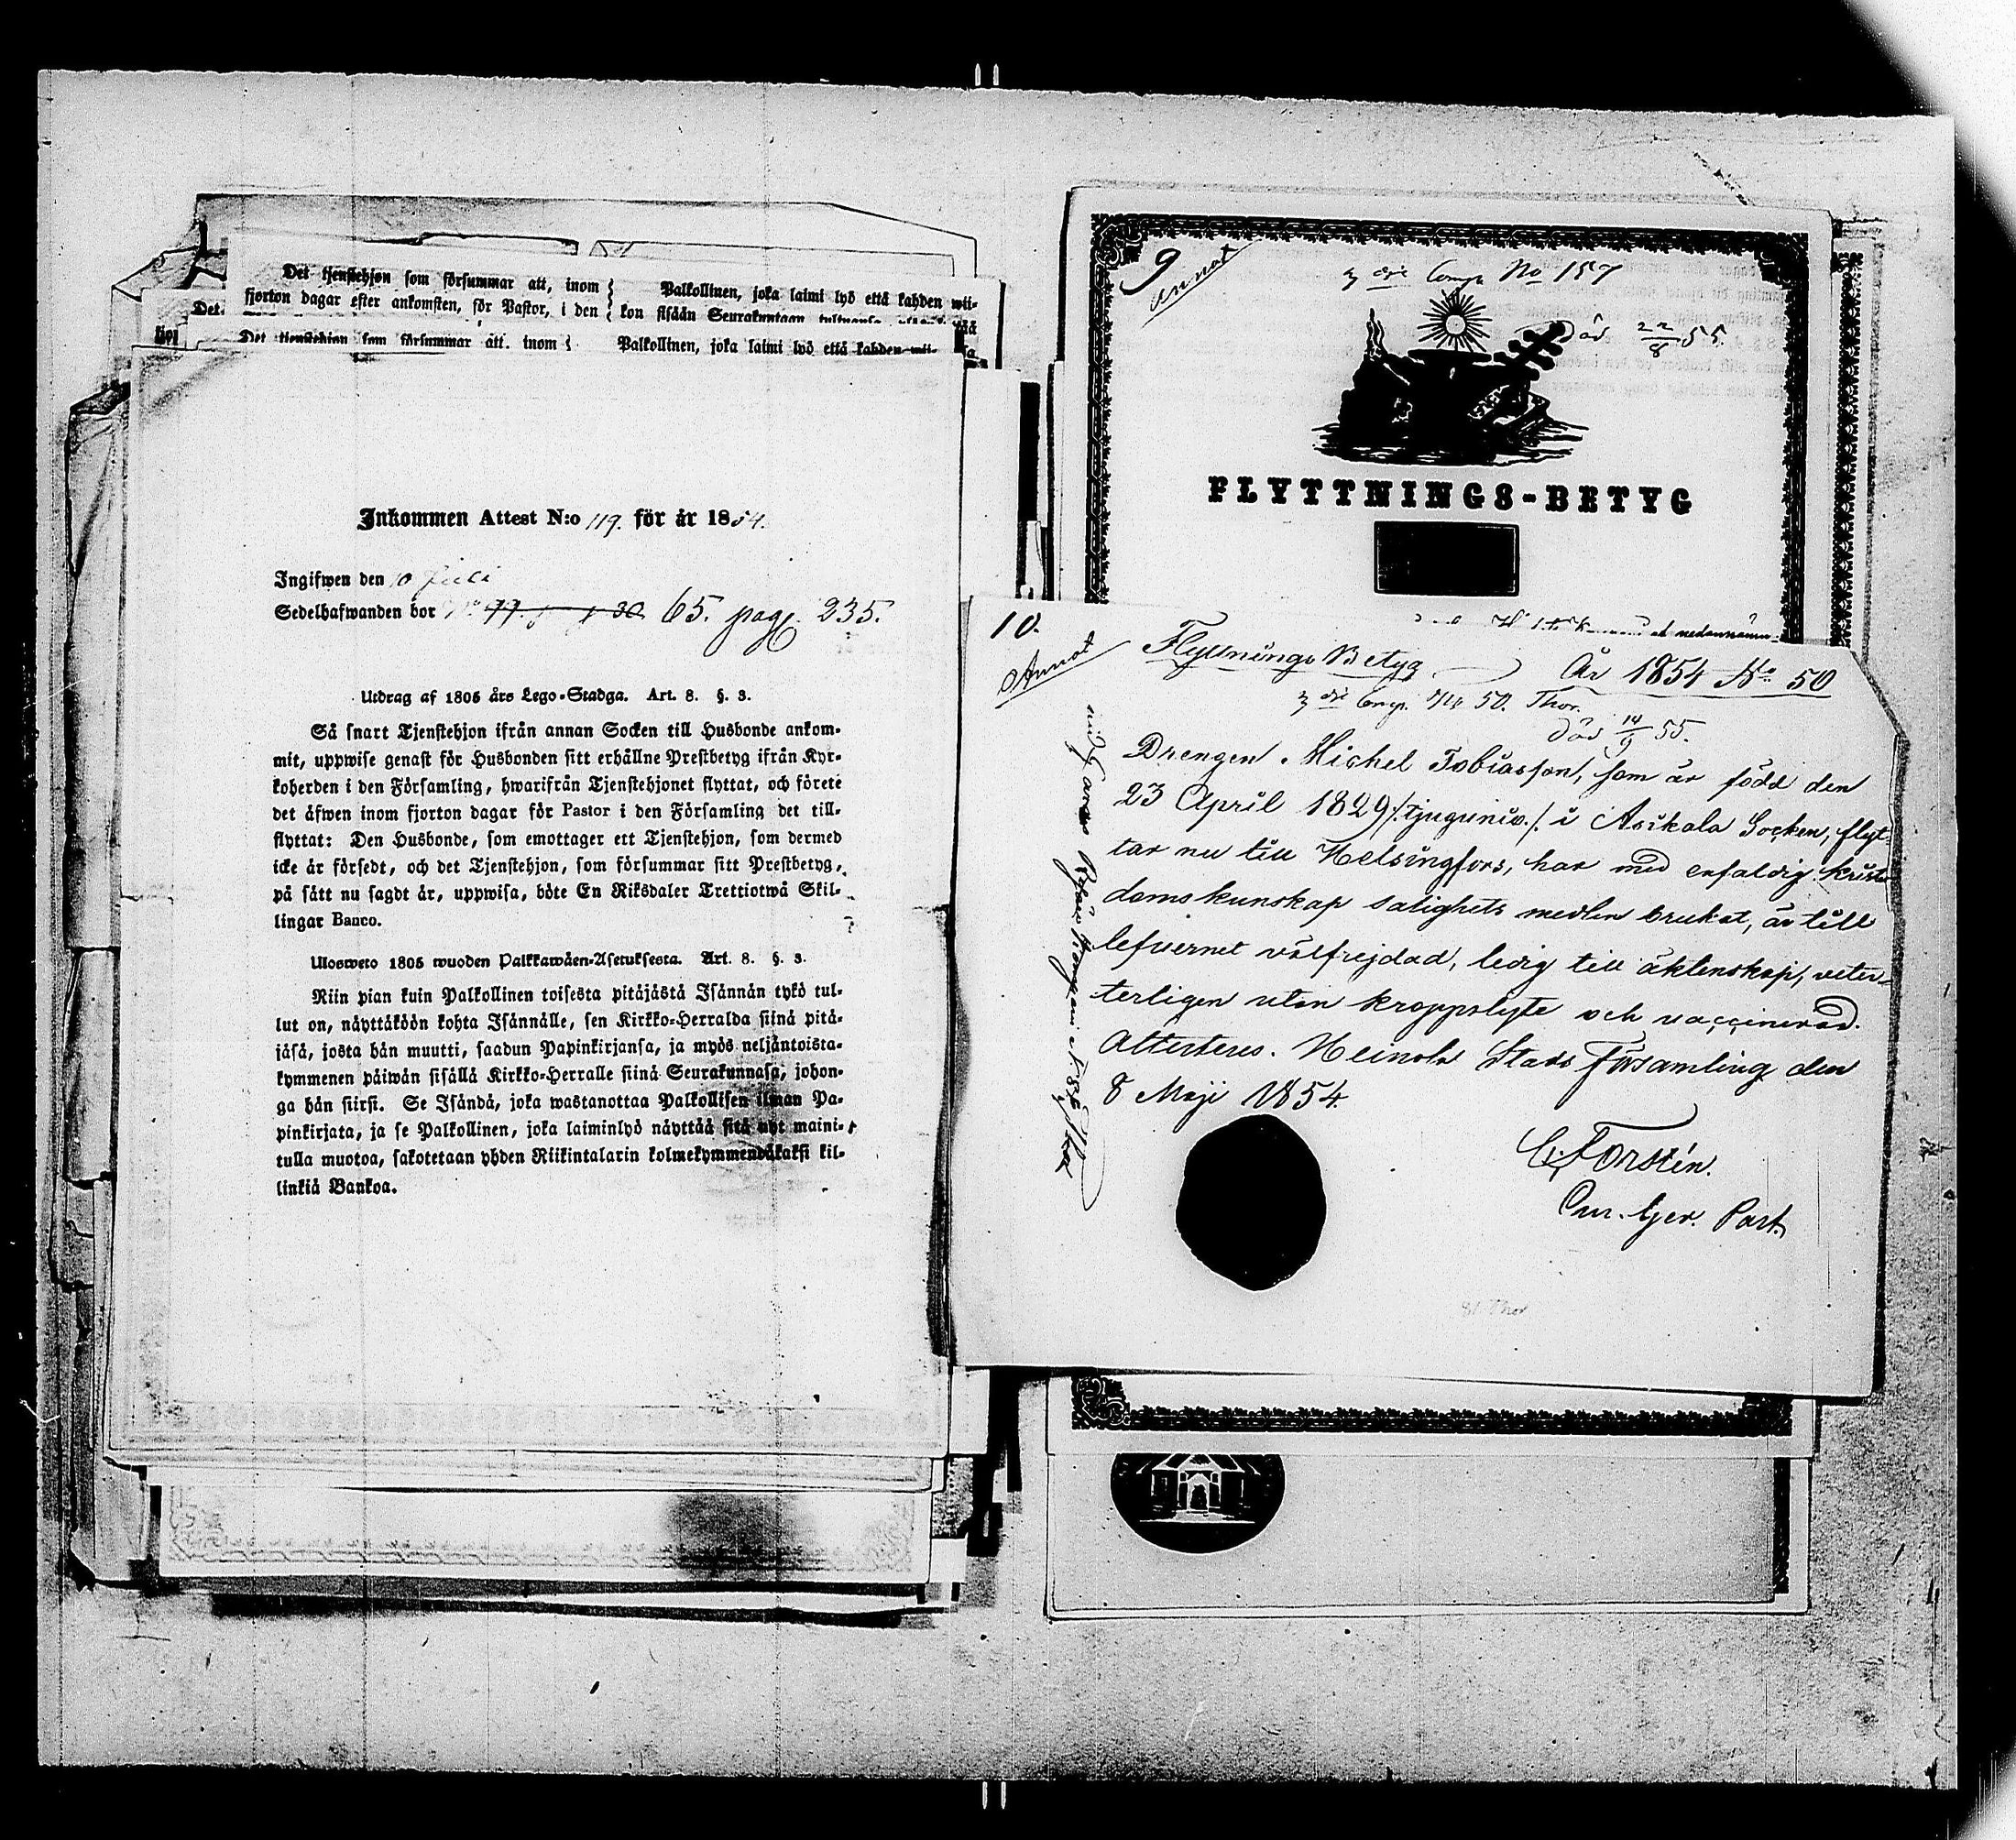 Det tjenstehjon som försummar att, inom
fjorton dagar efter ankomsten, för Pastor, i den
Palkollinen, joka laimi lyö että kahden wii-
kon sisään Seurakuntaan
Det
Det tjenstehjon som försummar att, inom
Palkollinen, joka laimi lyö että kahden wii-
Inkommen Attest N:o 119. för år 1854.
Ingifwen den 10 Juli
Sedelhafwanden bor No 77. 65. pag. 235.
Utdrag af 1805 års Lego-Stadga. Art. 8. §. 3.
Så snart Tjenstehjon ifrån annan Socken till Husbonde ankom-
mit, uppwise genast för Husbonden sitt erhållne Prestbetyg ifrån Kyr-
koherden i den Församling, hwarifrån Tjenstehjonet flyttat, och förete
det äfwen inom fjorton dagar för Pastor i den Församling det till-
flyttat: Den Husbonde, som emottager ett Tjenstehjon, som dermed
icke är försedt, och det Tjenstehjon, som försummar sitt Prestbetyg,
på sätt nu sagdt är, uppwisa, böte En Riksdaler Trettiotwå Skil-
lingar Banco.
Ulosweto 1805 wuoden Palkkawäen-Asetuksesta. Art. 8. §. 3.
Niin pian kuin Palkollinen toisesta pitäjästä Isännän tykö tul-
lut on, näyttäköön kohta Isännälle, sen Kirkko-Herralda siinä pitä-
jäsä, josta hän muutti, saadun Papinkirjansa, ja myös neljäntoista-
kymmenen päiwän sisällä Kirkko-Herralle siinä Seurakunnasa, johon-
ga hän siirsi. Se Isändä, joka wastanottaa Palkollisen ilman Pa-
pinkirjata, ja se Palkollinen, joka laiminlyö näyttää sitä nyt maini-
tulla muotoa, sakotetaan yhden Riikintalarin kolmekymmendäkaksi kil-
linkiä Bankoa.
9
Annot
3 die Comp. No 157
Död 22/8 55.
FLYTTNINGS-BETYG
nedannämn-
10.
Annot
Flyttnings Betyg
År 1854 No 50
3 die Comp. No 50. Thor.
Död 14/9 55.
Drengen Michel Tobiasson, som är född den
23 April 1829 /:tjugunio:/ i Asikala Socken, flyt-
tar nu till Helsingfors, har med enfaldig kristen-
domskunskap salighets medlen brukat, är till
lefvernet välfrejdad, ledig till äktenskap, veter-
terligen utan kroppslyte och vaccinerad.
Attesteras. Heinola Stads församling den
8 Maji 1854.
C. Forstén.
Past.